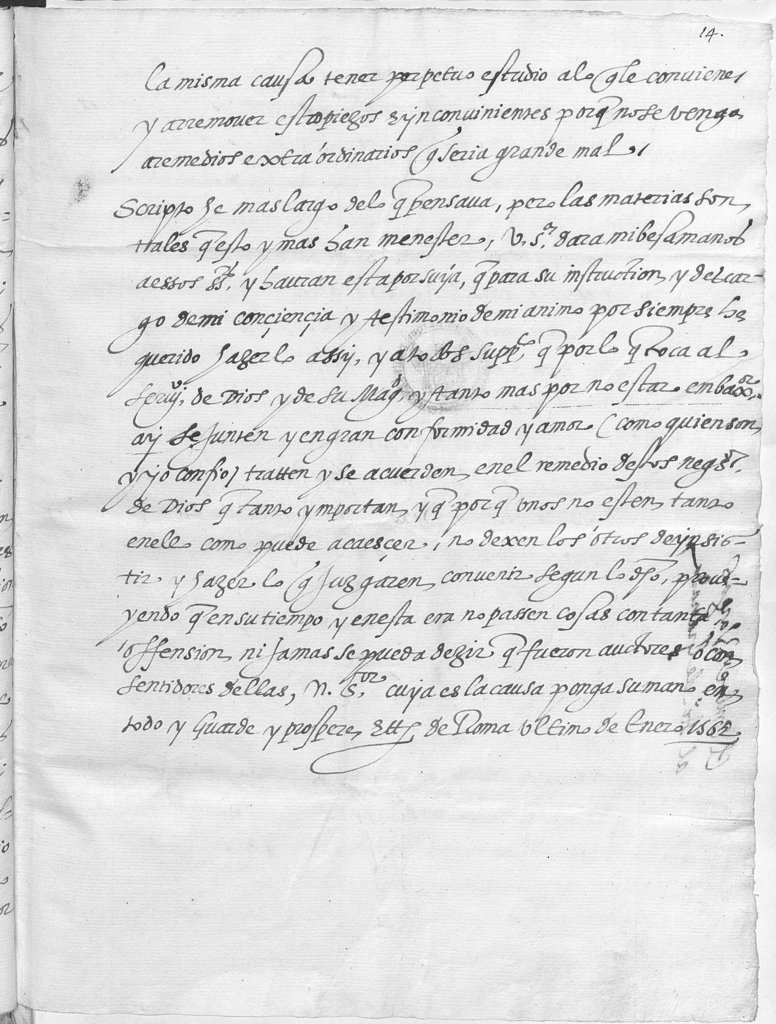 14.
la misma causa tener perpetuo estudio alo q̃ le conviene,
y arremover estropieços & ynconvinientes porq̃ no se venga
aremedios extraordinarios q̃ seria grande mal,
Scripto he mas largo delo q̃ pensava, pero las materias son
ttales q̃ esto y mas han menester, V. S.ª dara mi besamanos
a essos S.res y havran esta por suya, q̃ para su instruction, y descar-
go de mi conçiençia y testimonio de mi animo por siempre he
querido hazerlo assy, y a todos supp.co q̃ por lo q̃ toca al
serui.o de Dios y de su Mag.d y tanto mas por no estar embax.or
ay se junten y en gran conformidad y amor (como quien son,
y yo confio) tratten y se acuerden enel remedio destos neg.os
de Dios q̃ tanto ymportan, y q̃ porq̃ unos no esten tanto
enello como puede acaesçer, no dexen los otros de ynsis-
tir y hazer lo q̃ juzgaren convenir segun lo d̃ho, prove-
yendo q̃ en su tiempo y en esta era no passen cosas con tanta
offension, ni jamas se pueda dezir q̃ fueron auctores o con
sentidores dellas, N. S.or cuya es la causa ponga su mano en
todo y Guarde y prospere, &tt. de Roma ultimo de Enero 1562